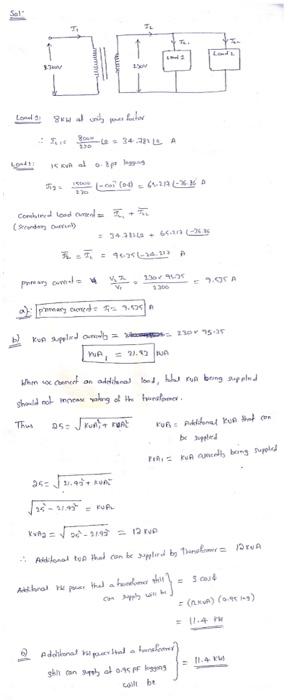 Sol:-
I1
I2
IL1
IL2
2300V
230V
Load 1
Load 2
Load 1: 8KW at unity power factor
∴ IL1 = 8000/230 ∠0 = 34.782∠0 A
15 KVA at 0.8pf lagging
IL2 = 15000/230 ∠-cos⁻¹(0.8) = 65.217∠-36.86 A
Combined load current = IL1 + IL2
(Secondary current)
= 34.782∠0 + 65.217∠-36.86
= 95.35∠-24.217 A
primary current = V2 I2/V1 = 230×95.35/2300 = 9.535 A
a) primary current = I1 = 9.535 A
b) KVA supplied currently = 230×95.35
KVA1 = 21.93 KVA
When we connect an additional load, total KVA being supplied
should not increase rating of the transformer.
Thus 25 = √KVA1² + KVA2² KVA2 = Additional KVA that can
be supplied
KVA1 = KVA currently being supplied
25 = √21.93² + KVA2²
√25² - 21.93² = KVA2
KVA2 = √25² - 21.93² = 12 KVA
∴ Additional KVA that can be supplied by Transformer = 12KVA
Additional KW power that a transformer still can supply will be } = S cosϕ
= (12KVA) (0.95 lag)
= 11.4 KW
Additional KW power that a transformer
still can supply at 0.95 PF lagging
will be } = 11.4 KW